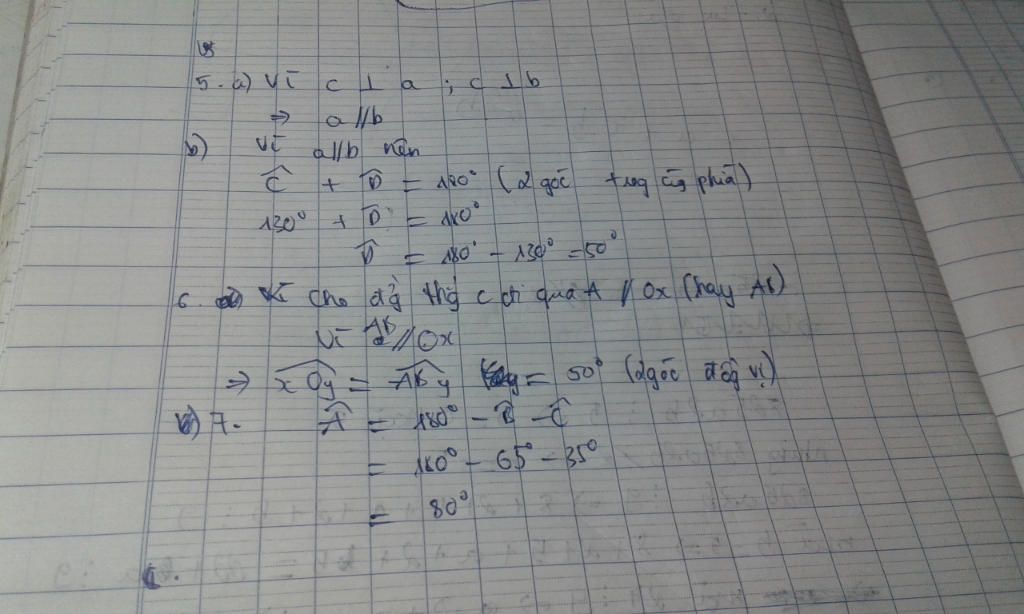 5. a) Vì c ⊥ a ; c ⊥ b
⇒ a // b
b) Vì a // b nên
Ĉ + D̂ = 180° (2 góc trog cùg phía)
130° + D̂ = 180°
D̂ = 180° - 130° = 50°
6. Vì cho đg thg c đi qua A // Ox (hay AB)
Vì AB // Ox
⇒ xOy = ABy = 50° (2 góc đồg vị)
7. Â = 180° - B̂ - Ĉ
= 180° - 65° - 35°
= 80°